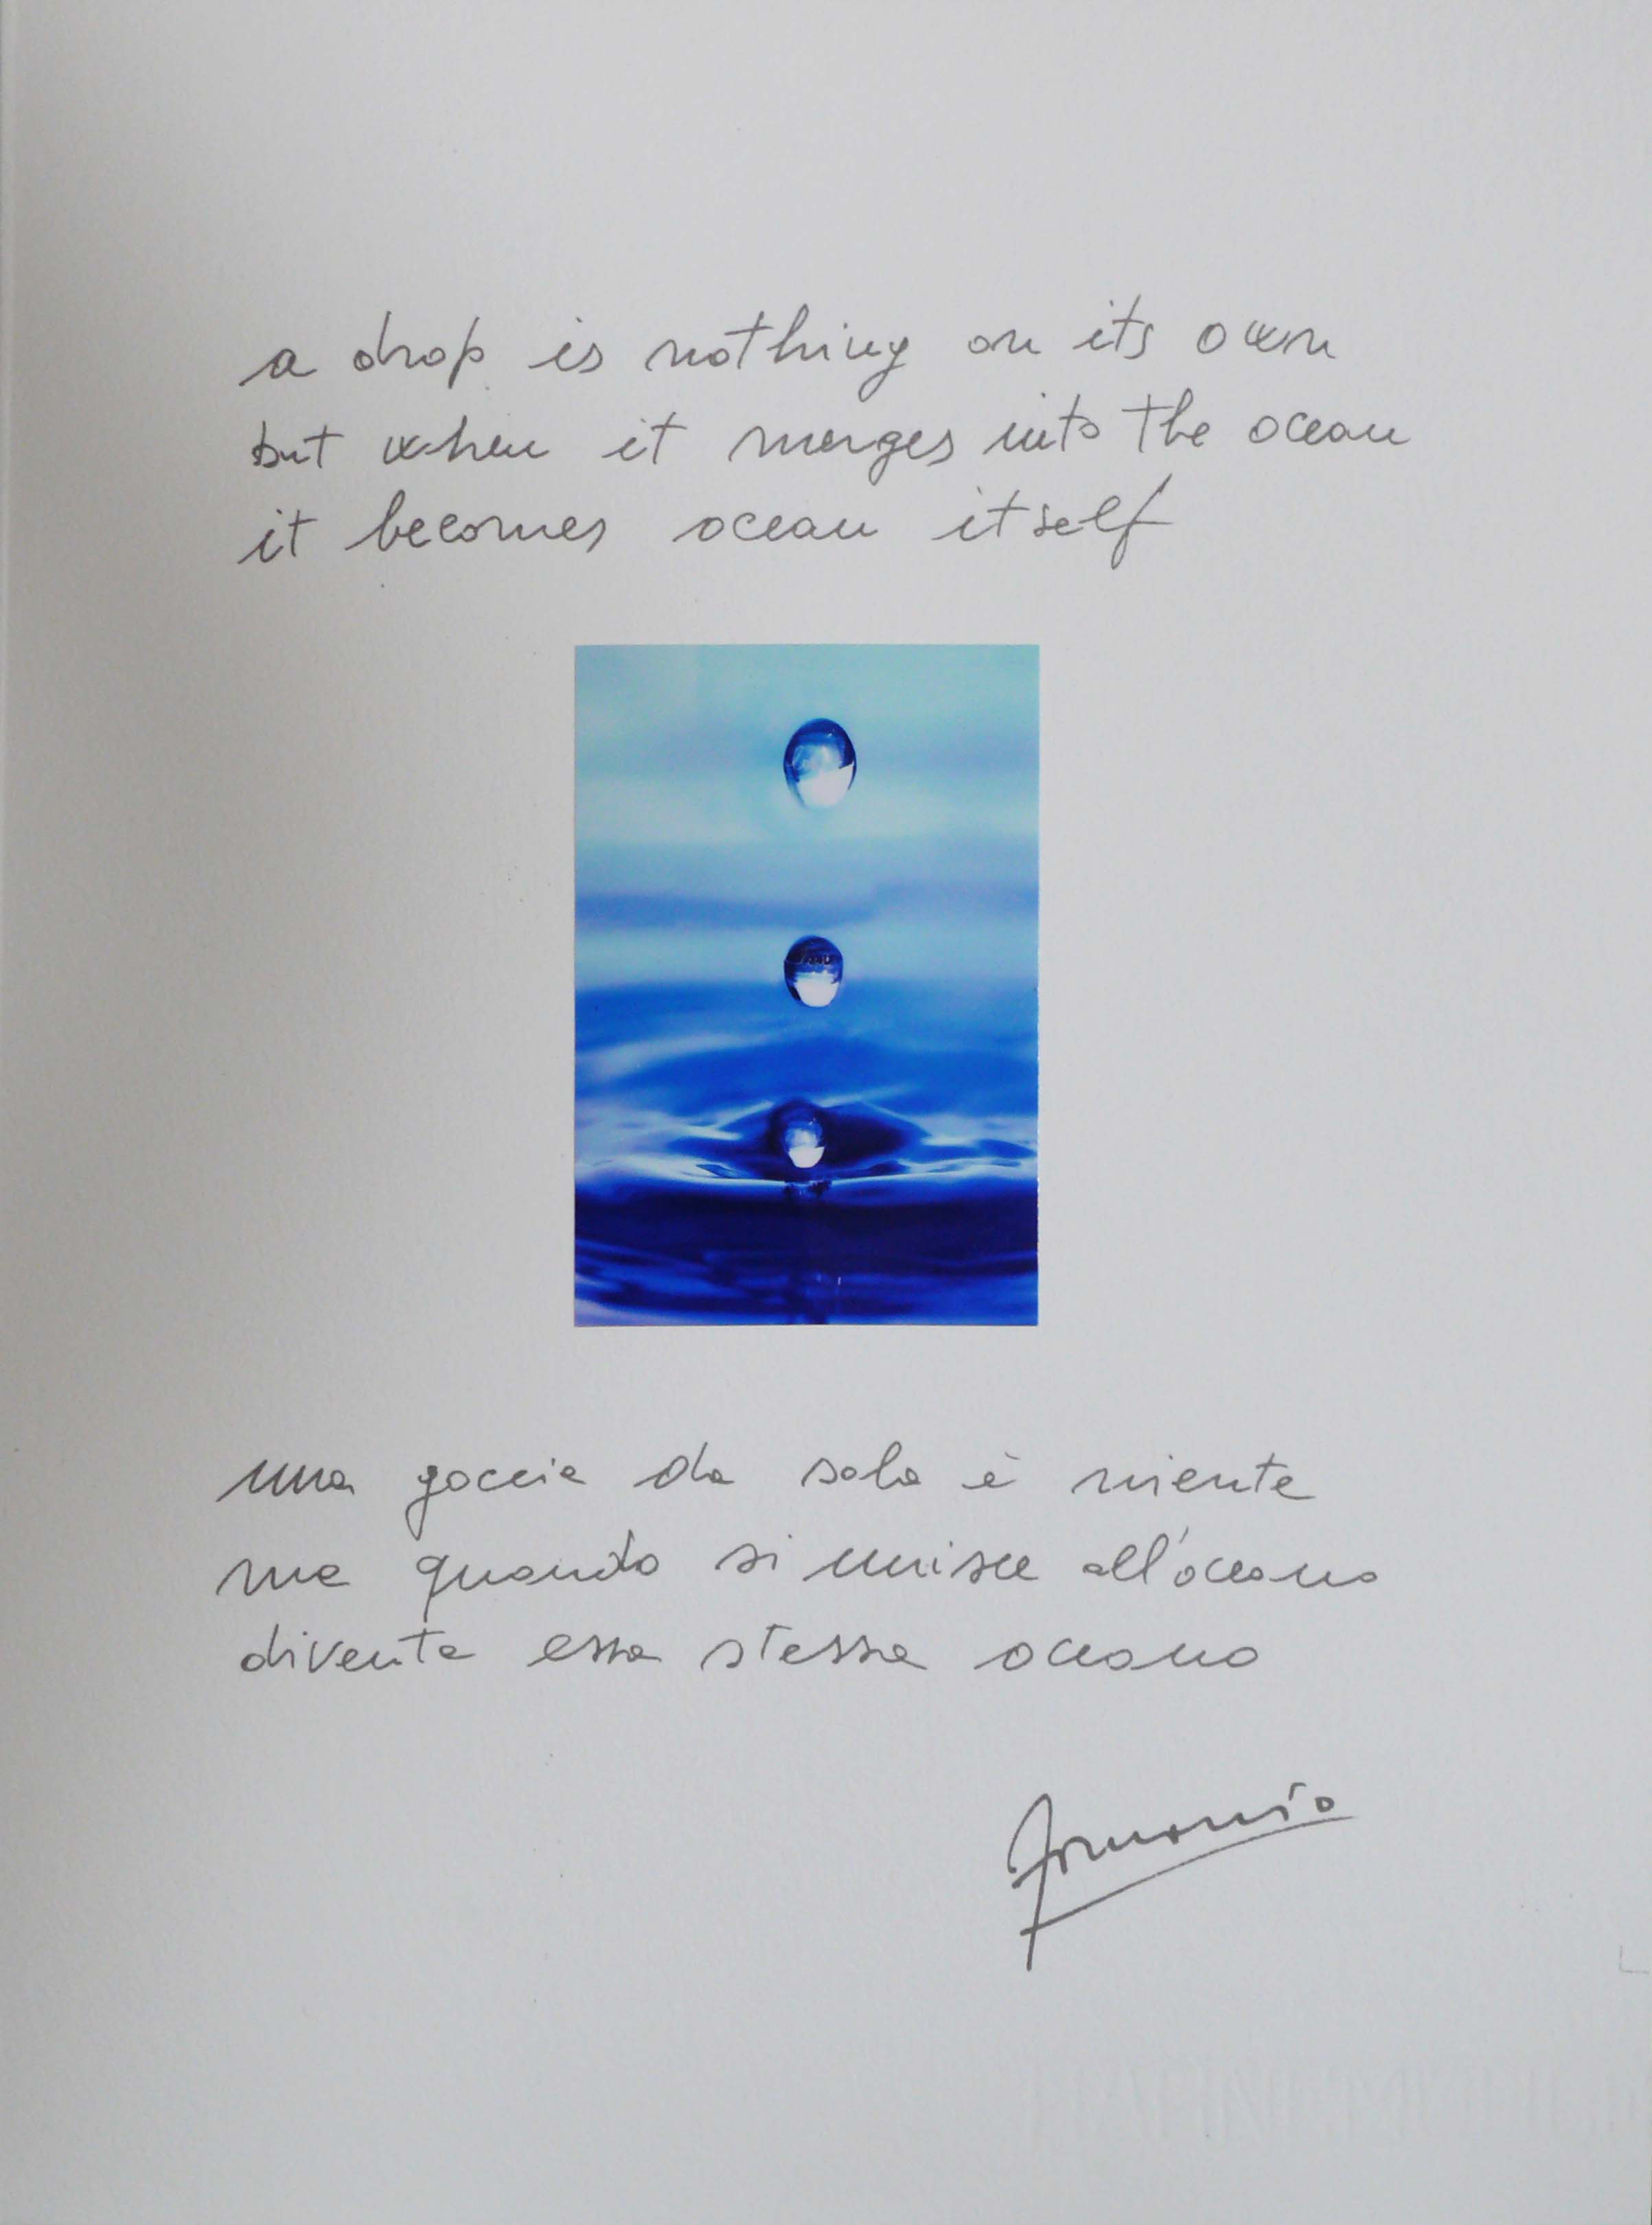 a drop is nothing on its own
but when it merges into the ocean
it becomes ocean itself
una goccia da sola è niente
ma quando si unisce all'oceano
diventa essa stessa oceano